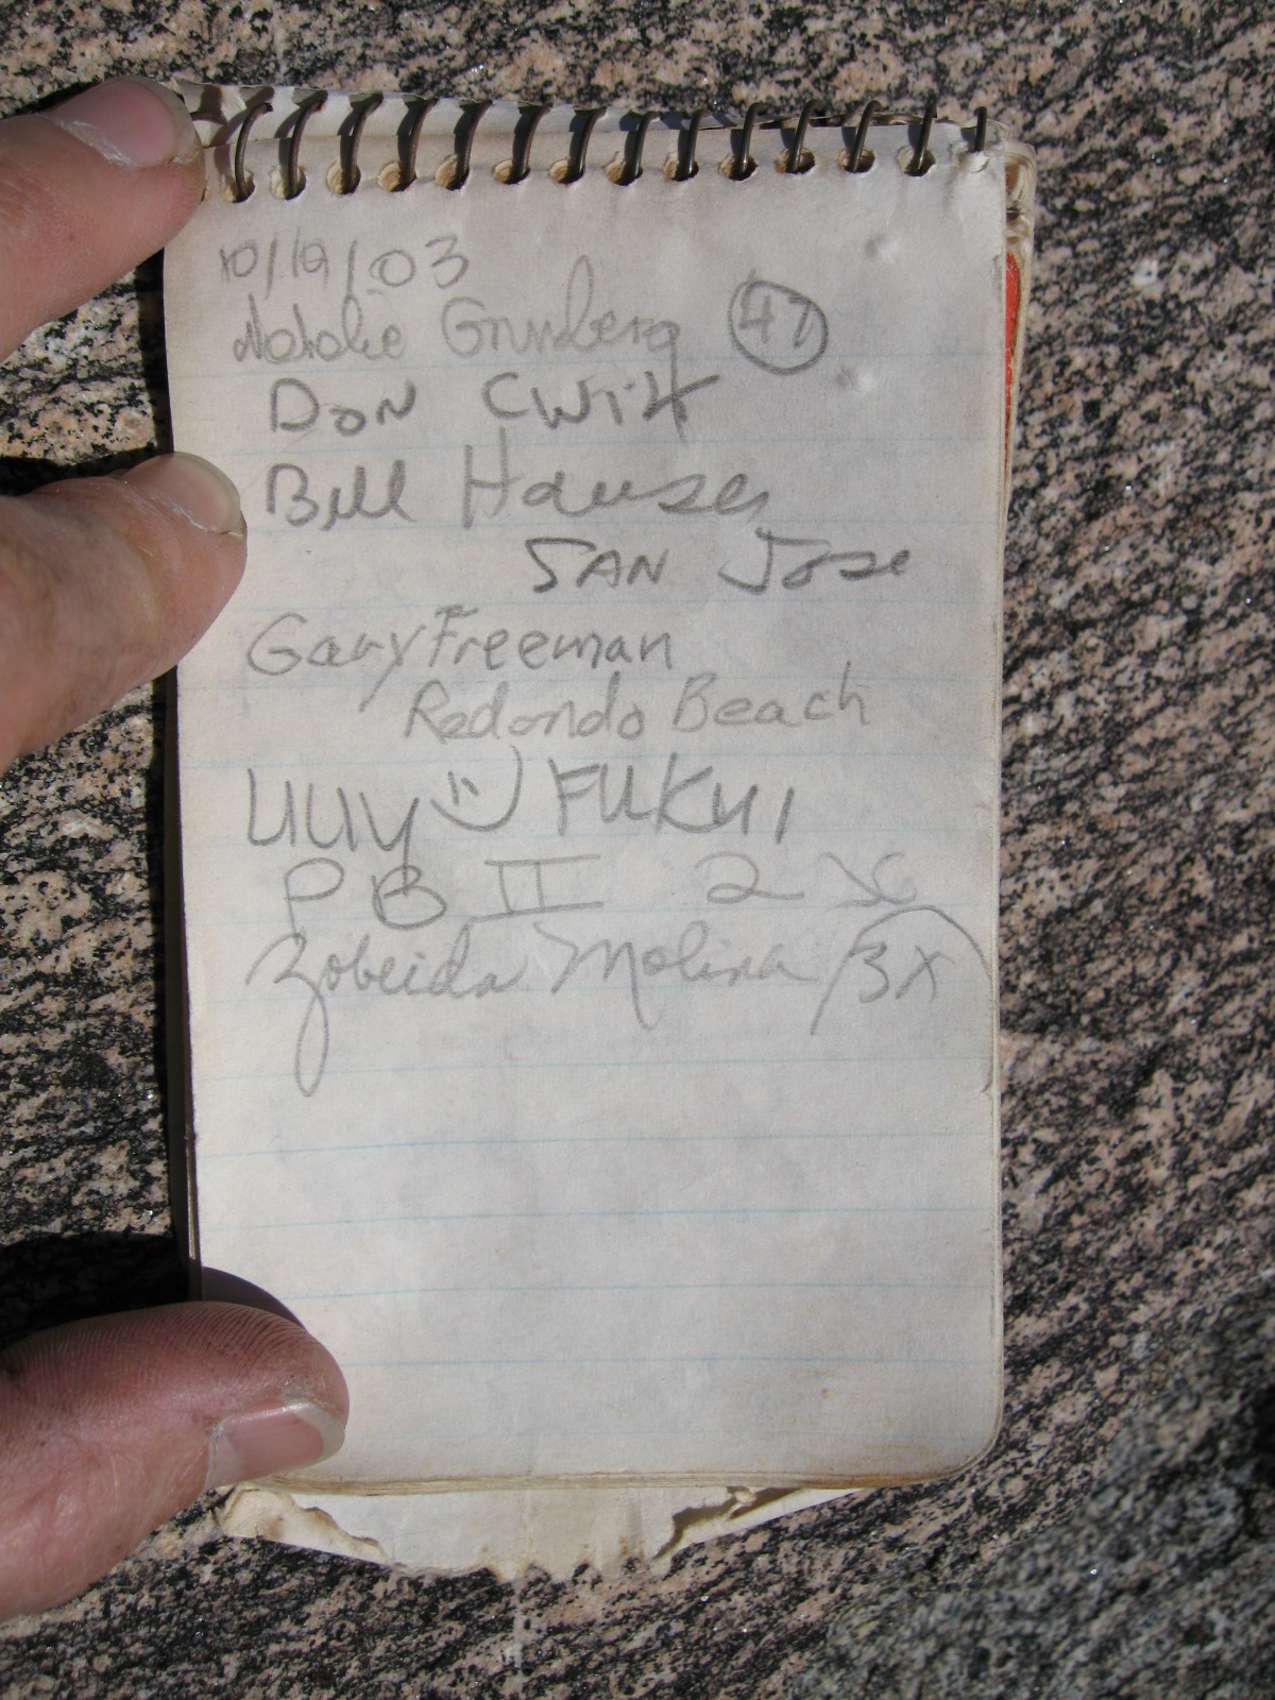 10/19/03
Natalie Grunberg 47
DON CWiK
Bill Hauser
SAN Jose
Gary Freeman
Redondo Beach
LILLY FUKUI
PB II 2X
Zobeida Molina 3X